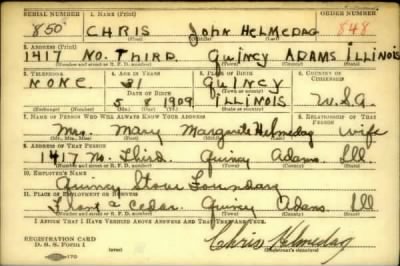 SERIAL NUMBER 1. NAME (Print) ORDER NUMBER
850 CHRIS John HELMEDAG 848
(First) (Middle) (Last)
2. ADDRESS (Print)
1417 No. THIRD. Quincy ADAMS ILLINOIS
(Number and street or R. F. D. number) (Town) (County) (State)
3. TELEPHONE 4. AGE IN YEARS 5. PLACE OF BIRTH 6. COUNTRY OF CITIZENSHIP
NONE 31 QUINCY
DATE OF BIRTH (Town or county)
5 8 1909 ILLINOIS U.S.A
(Exchange) (Number) (Mo.) (Day) (Yr.) (State or country)
7. NAME OF PERSON WHO WILL ALWAYS KNOW YOUR ADDRESS 8. RELATIONSHIP OF THAT PERSON
Mrs. Mary Margarite Helmedag wife
(Mr., Mrs., Miss) (First) (Middle) (Last)
9. ADDRESS OF THAT PERSON
1417 No. Third. Quincy Adams. Ill
(Number and street or R. F. D. number) (Town) (County) (State)
10. EMPLOYER'S NAME
Quincy Stove Foundary
11. PLACE OF EMPLOYMENT OR BUSINESS
Front & Cedar. Quincy Adams. Ill
(Number and street or R. F. D. number) (Town) (County) (State)
I AFFIRM THAT I HAVE VERIFIED ABOVE ANSWERS AND THAT THEY ARE TRUE.
REGISTRATION CARD
D. S. S. Form 1
Chris Helmedag
(Registrant's signature)